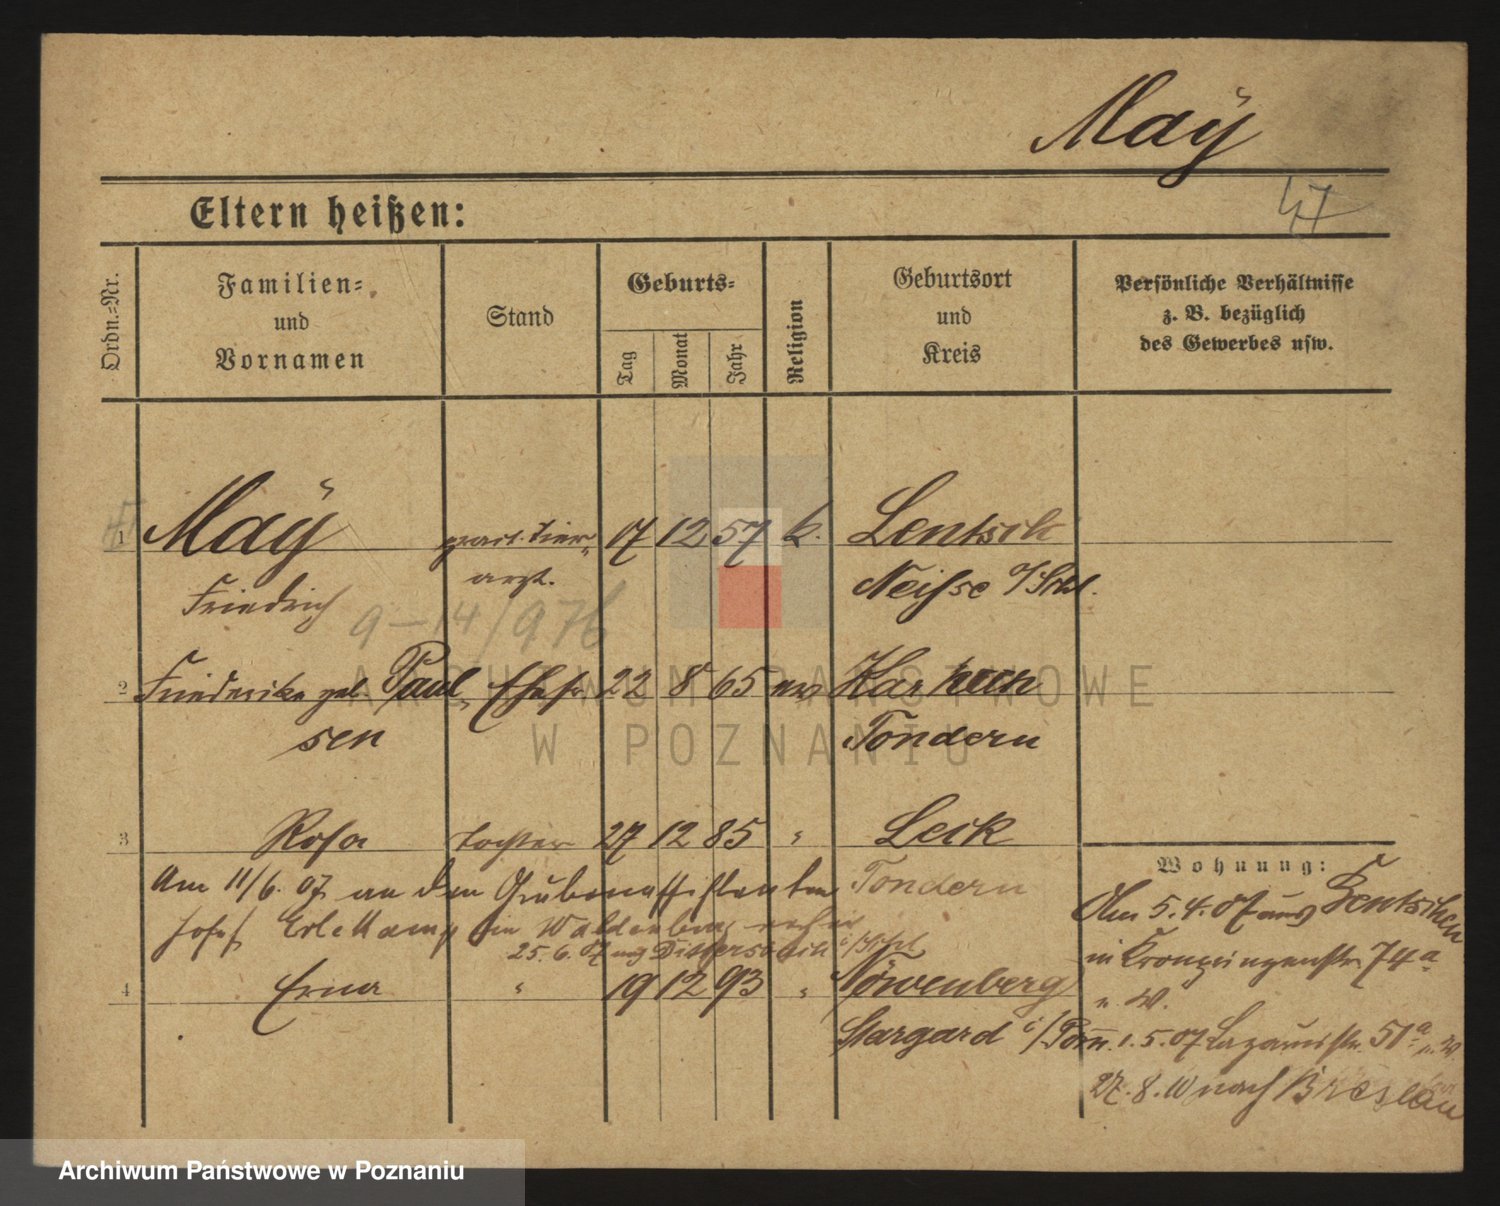 Maÿ
47
Eltern heißen:
Ordn.-Nr.
Familien- und Vornamen
Stand
Geburts-
Tag
Monat
Jahr
Religion
Geburtsort und Kreis
Persönliche Verhältnisse
z. B. bezüglich
des Gewerbes usw.
1 Maÿ pract. Tier- 17 12 57 k. Lentsch
Friedrich arzt. Neisse o/Schl.
9-14/976
2 Friederike geb. Paul- Ehefr 22 8 65 ev Karheen
sen Tondern
3 Rosa Tochter 27 12 85 " Leck
Am 11/6. 07 an den Grubenassistenten Tondern
Josef in Waldenburg
25. 6. 07 Dittersbach i/Schl.
4 Erna " 19 12 93 " Löwenberg
Stargard i/Pom.
Wohnung:
Am 5.4.07 aus Bentschen
in Kronprinzenstr 74a
1.5.07 Lazarusstr. 51a
27.8.10 nach Breslau
ARCHIWUM PAŃSTWOWE
W POZNANIU
Archiwum Państwowe w Poznaniu